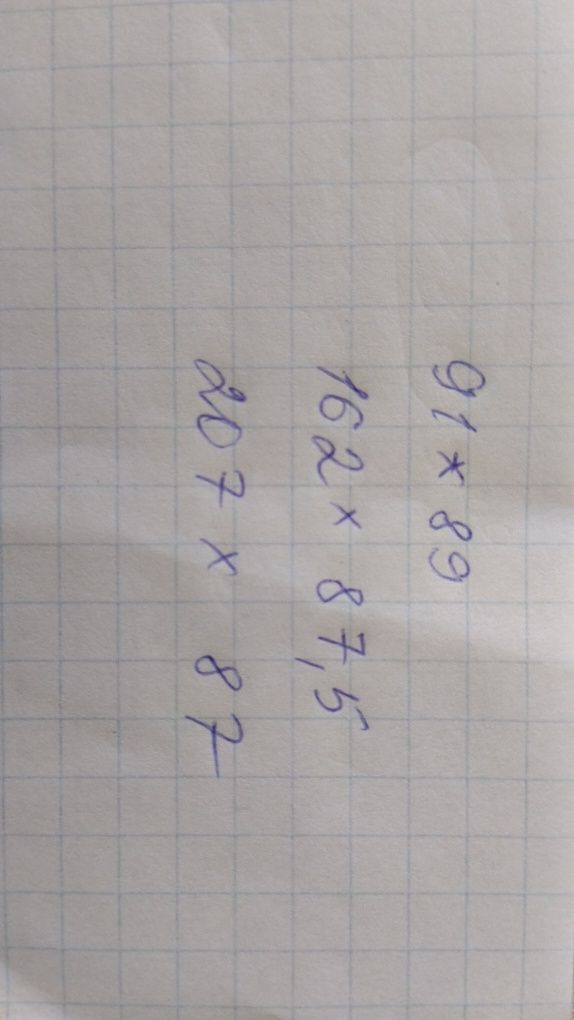 91 × 89
162 × 87,5
207 × 87